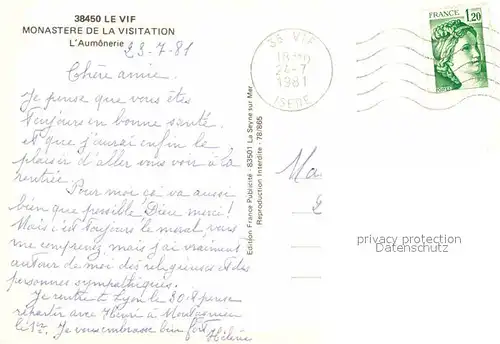 38450 LE VIF
MONASTERE DE LA VISITATION
L'Aumônerie
23-7-81
Chère amie.
Je pense que vous êtes
toujours en bonne santé.
et que j'aurai enfin le
plaisir d'aller vous voir à la
rentrée.
Pour moi ça va aussi
bien que possible Dieu merci!
Mais c'est toujours le moral, vous
me comprenez, mais j'ai vraiment
autour de moi des religieuses et des
personnes sympathiques.
Je rentre à Lyon le 30. & pense
repartir avec Henri à
le 1er. Je vous embrasse bien fort
Hélène
Edition France Publicité - 83501 La Seyne sur Mer
Reproduction Interdite - 78/865
38 VIF
18H
24-7
1981
ISERE
FRANCE
1,20
Ma
privacy protection